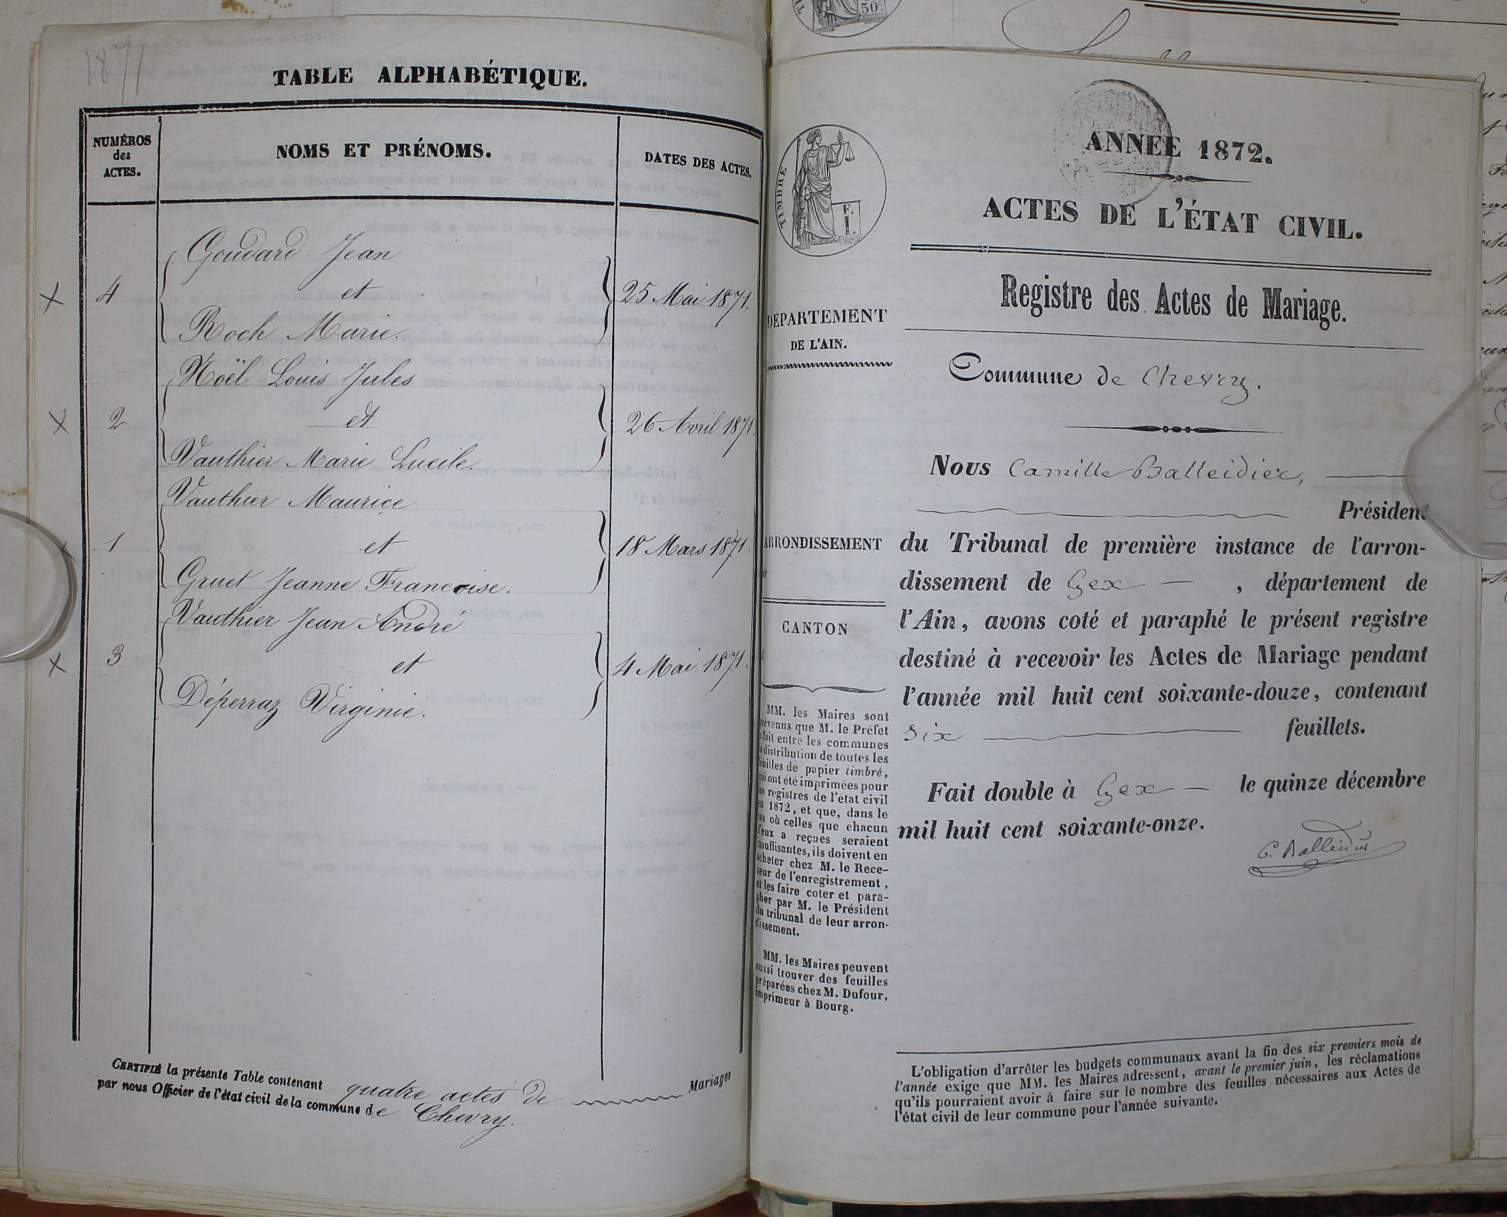 1871
TABLE ALPHABÉTIQUE.
NUMÉROS
des
ACTES.
NOMS ET PRÉNOMS.
DATES DES ACTES.
Goudard Jean
4 et 25 Mai 1871.
Roch Marie.
Noël Louis Jules
2 et 26 Avril 1871
Vauthier Marie Lucile.
Vauthier Maurice
1 et 18 Mars 1871.
Gruet Jeanne Françoise.
Vauthier Jean André
3 et 4 Mai 1871.
Déperraz Virginie.
CERTIFIÉ la présente Table contenant quatre actes de Mariages
par nous Officier de l'état civil de la commune de Chevry.
50
TIMBRE
ANNÉE 1872.
ACTES DE L'ÉTAT CIVIL.
Registre des Actes de Mariage.
DÉPARTEMENT
DE L'AIN.
Commune de Chevry.
Nous Camille Balleidier,
Président
ARRONDISSEMENT
du Tribunal de première instance de l'arron-
dissement de Gex , département de
CANTON
l'Ain, avons coté et paraphé le présent registre
destiné à recevoir les Actes de Mariage pendant
l'année mil huit cent soixante-douze, contenant
six feuillets.
Fait double à Gex le quinze décembre
mil huit cent soixante-onze.
C. Balleidier
MM. les Maires sont
prévenus que M. le Préfet
a fait entre les communes
la distribution de toutes les
feuilles de papier timbré,
qui ont été imprimées pour
les registres de l'état civil
en 1872, et que, dans le
cas où celles que chacun
d'eux a reçues seraient
insuffisantes, ils doivent en
acheter chez M. le Rece-
veur de l'enregistrement,
et les faire coter et para-
pher par M. le Président
du tribunal de leur arron-
dissement.
MM. les Maires peuvent
aussi trouver des feuilles
préparées chez M. Dufour,
imprimeur à Bourg.
L'obligation d'arrêter les budgets communaux avant la fin des six premiers mois de
l'année exige que MM. les Maires adressent, avant le premier juin, les réclamations
qu'ils pourraient avoir à faire sur le nombre des feuilles nécessaires aux Actes de
l'état civil de leur commune pour l'année suivante.